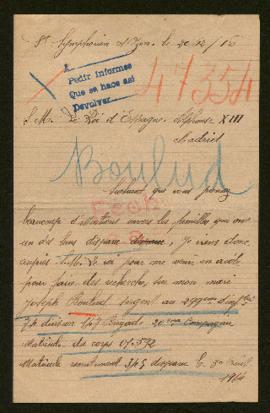 St Symphorien d'Ozon, le 20/12/15
Pedir informes
Que se hace así
Devolver
47354
S. M. Le Roi d'Espagne, Alphonse XIII
Madrid
Boulud
Sachant que vous prenez
beaucoup d'attentions envers les familles qui ont
un des leurs disparu, Je viens donc
auprès S.M. Le roi pour me venir en aide
pour faire des recherches, sur mon mari
Joseph Boulud, sergent au 299ème d'inf
74 division 147 Brigade 20ème Compagnie
Matricule de corps
Matricule recrutement 345 disparu le 30 
1914